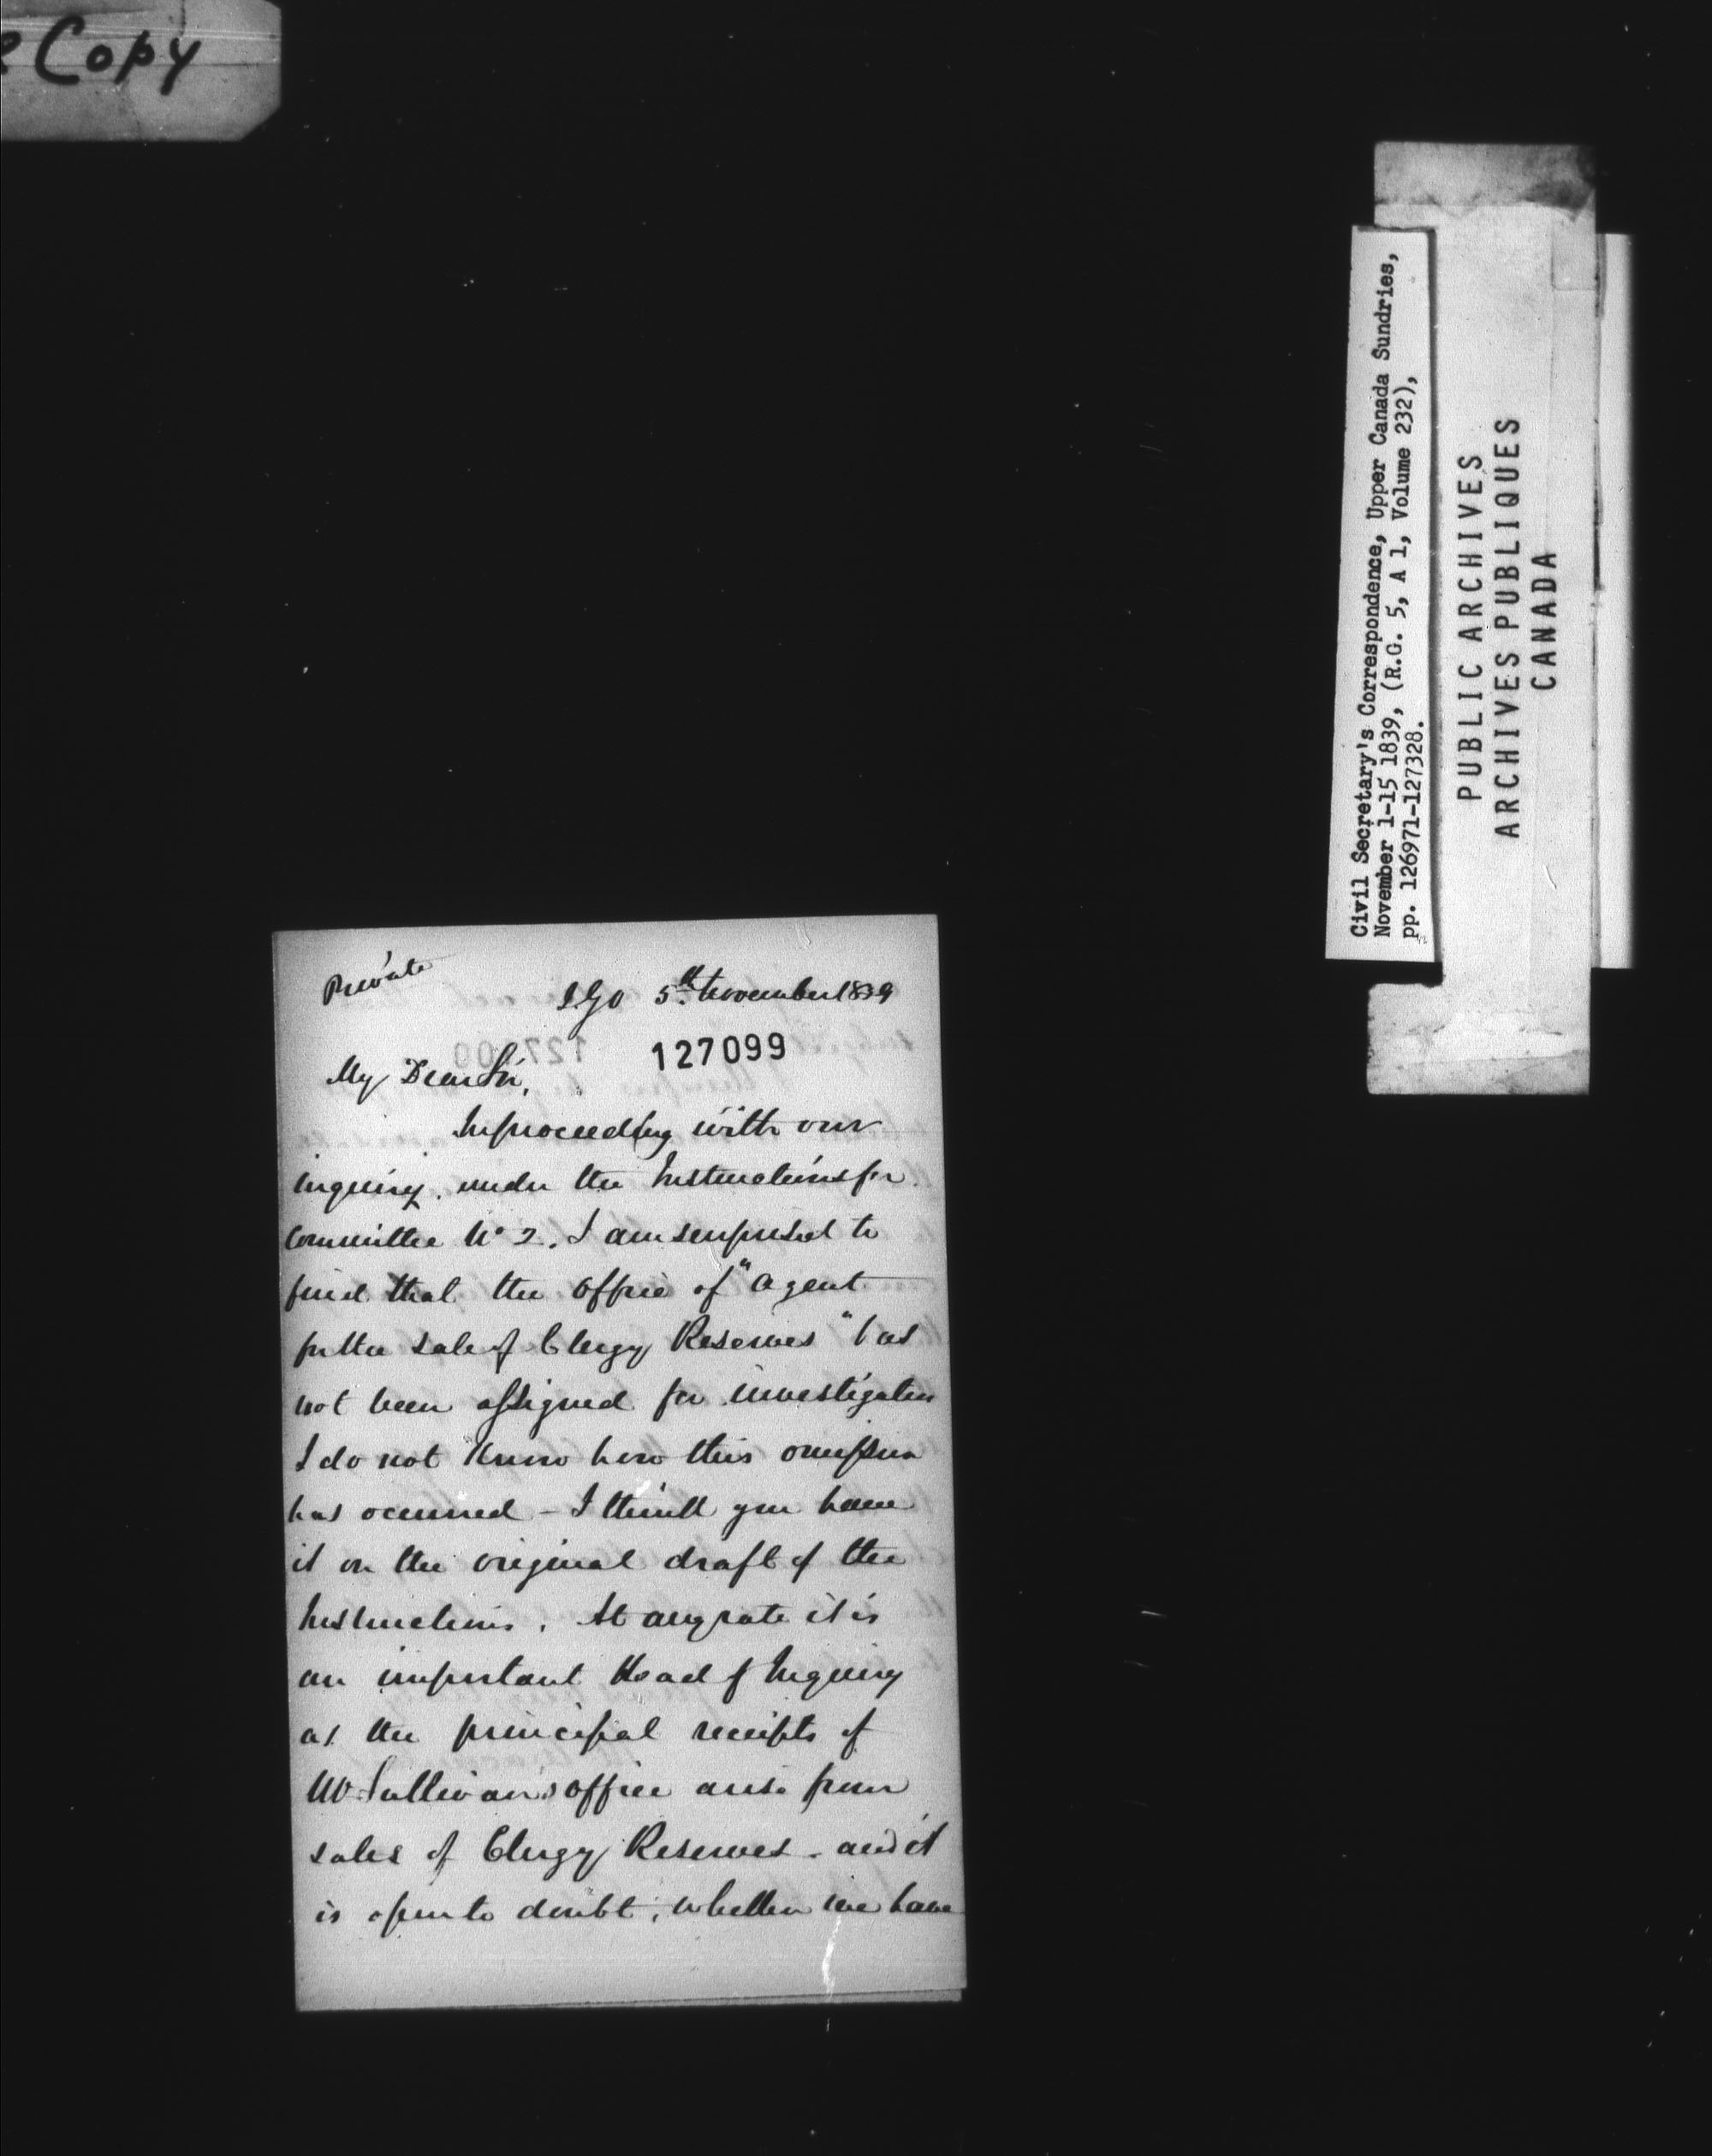 Copy
Civil Secretary's Correspondence, Upper Canada Sundries,
November 1-15 1839, (R.G. 5, A 1, Volume 232),
pp. 126971-127328.
PUBLIC ARCHIVES
ARCHIVES PUBLIQUES
CANADA
Private
I.G.O 5th November 1839
127099
My Dear Sir,
In proceeding with our
inquiry, under the Instructions for
Committee No 2. I am surprised to
find that the office of "Agent
for the sale of Clergy Reserves" has
not been assigned for investigation
I do not know how this omission
has occurred - I think you have
it on the original draft of the
Instructions. At any rate it is
an important Head of Inquiry
as the principal receipts of
Mr Sullivans office arise from
sales of Clergy Reserves - and it
is open to doubt, whether we have